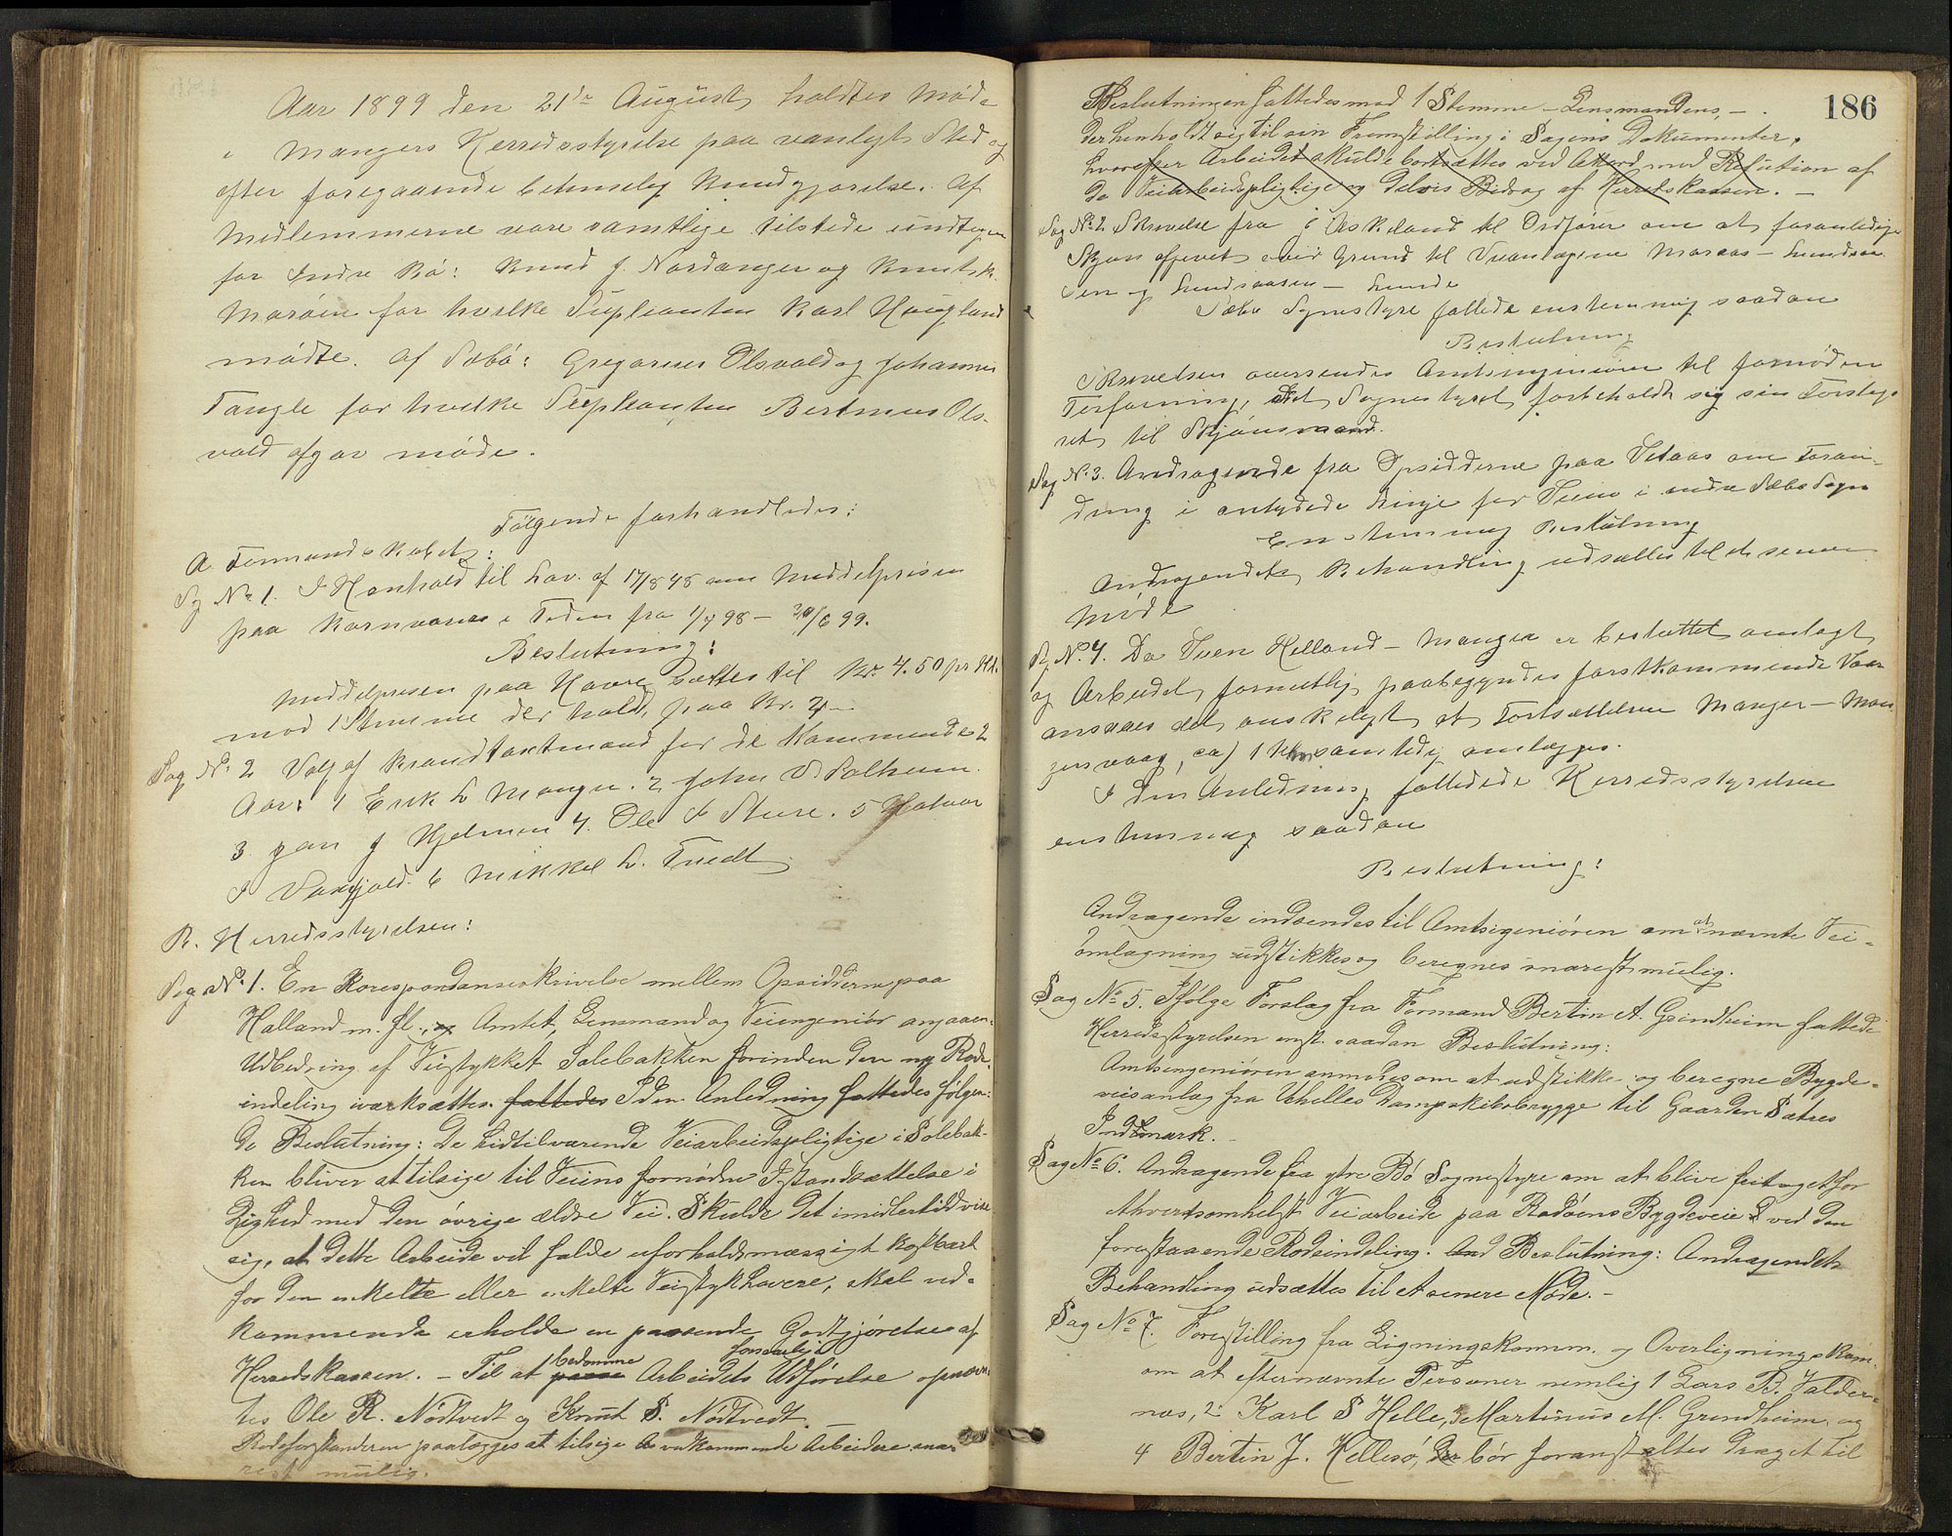 Aar 1899 den 21de August holdtes Møde
i Mangers Herredsstyrelse paa vanligt Sted og
efter foregaaende behmelig Kundgjørelse. Af
Medlemmerne vare samtlige tilstede undtagen
for Indre Bø: Knud J. Nordanger og Knut K.
Marøen for hvilke Supleanten Karl Haugland
mødte. Af Sæbø: Gregorius Olsvold og Johannes
Tangle for hvilke Supleanten Bertinus Ols-
vold afgav møde.
Følgende forhandledes:
A Formandskabet:
Sag No 1. I Henhold til Lov. af 17/8 48 om Middelprisen
paa Kornvarer i Tiden fra 1/7 98 – 30/6 99.
Beslutning:
Middelprisen paa Havre sættes til Kr. 4.50 pr Hl.
mod 1 Stemme der holdt paa Kr. 4.–
Sag No 2 Valg af Brandtaxtmænd for de kommende 2
Aar: 1 Erik L Manger. 2 Johan Solheim.
3 Jan J Hjelmen 4. Ole I Sture. 5 Halvor
I Vaxfjold. 6 Mikkel L. Tvedt
B. Herredsstyrelsen:
Sag No 1. En Korespondanseskrivelse mellem Opsidderne paa
Halland m. fl., Amtet, Lensmand og Veiingeniør angaaen-
Udbedring af Veistykket Solebakken forinden den ny Rode-
indeling iværksættes. fattedes I den Anledning fattedes følgen-
de Beslutning: De hidtilværende Veiarbeidspligtige i Solebak-
ken bliver at tilsige til Veiens fornødne Istandsættelse i
Lighed med den øvrige ældre Vei. Skulde det imidlertid vise
sig, at dette Arbeide vil falde uforholdsmæssigt kostbart
for den enkelte eller enkelte Veistykhavere, skal ved-
kommende erholde en passende Godtgjørelse af
Herredskassen. – Til at bedømme Arbeidets forsvarlige Udførelse opnævn-
tes Ole R. Nødtvedt og Knut S. Nødtvedt.
Rodeforstanderen paalægges at tilsige de vedkommende Arbeidere snar-
est mulig.
186
Beslutningen fattedes mod 1 Stemme – Lensmandens, –
der henholdt sig til sin Fremstilling i Sagens Dokumenter,
hvorefter Arbeidet skulde bortsættes ved Akkord med Relution af
de Veiarbeidspligtige og delvis Bidrag af Herredskassen. –
Sag No 2 Skrivelse fra J Askeland til Ordfører om at foranledige
Skjøn afgivet over Grund til Veianlægene Maraas – Lundsaa-
sen og Lundsaasen – Lunde
Sæbø Sognestyre fattede enstemmig saadan
Beslutning
Skrivelsen oversendes Amtsingeniøren til fornøden
Forføining, idet Sognestyret forbeholdt sig sin Forslags
ret til Skjønsmænd.
Sag No. 3. Andragende fra Opsidderne paa Setaas om Foran-
dring i antydede Linje for Veien i indre Sæbø Sogn
Enstemmig Beslutning
Andragendets Behandling udsættes til et senere
Møde
Sag No. 4. Da Veien Helland – Manger er besluttet omlagt
og Arbeidet formentlig paabegyndes førstkommende Vaar
ansaaes det ønskeligt at Fortsættelsen Manger – Man
gersvaag, ca) 1 Klm samtidig omlægges.
I den Anledning fattede Herredsstyrelsen
enstemmig saadan
Beslutning:
Andragende indsendes til Amtsigeniøren om at nævnte Vei-
omlægning udstikkes og beregnes snarest mulig.
Sag No 5. Ifølge Forslag fra Formand Bertin A. Grindheim fattede
Herredsstyrelsen enst. saadan Beslutning:
Amtsingeniøren anmodes om at udstikke og beregne Bygde-
veisanlæg fra Uthelles Dampskibsbrygge til Gaarden Sætres
Indmark. –
Sag No 6. Andragende fra ytre Bø Sognestyre om at blive fritaget for
ethvertsomhelst Veiarbeide paa Radøens Bygdeveie ved den
forestaaende Rodeindeling. Beslutning: Andragendets
Behandling udsættes til et senere Møde. –
Sag No 7. Forestilling fra Ligningskomm. og Overligningskom-
om at efternævnte Personer nemlig 1 Lars B. Valder-
næs, 2 Karl S Helle, 3 Martinus M. Grindheim, og
4 Bertin J. Hellesø, bør foranstaltes draget til